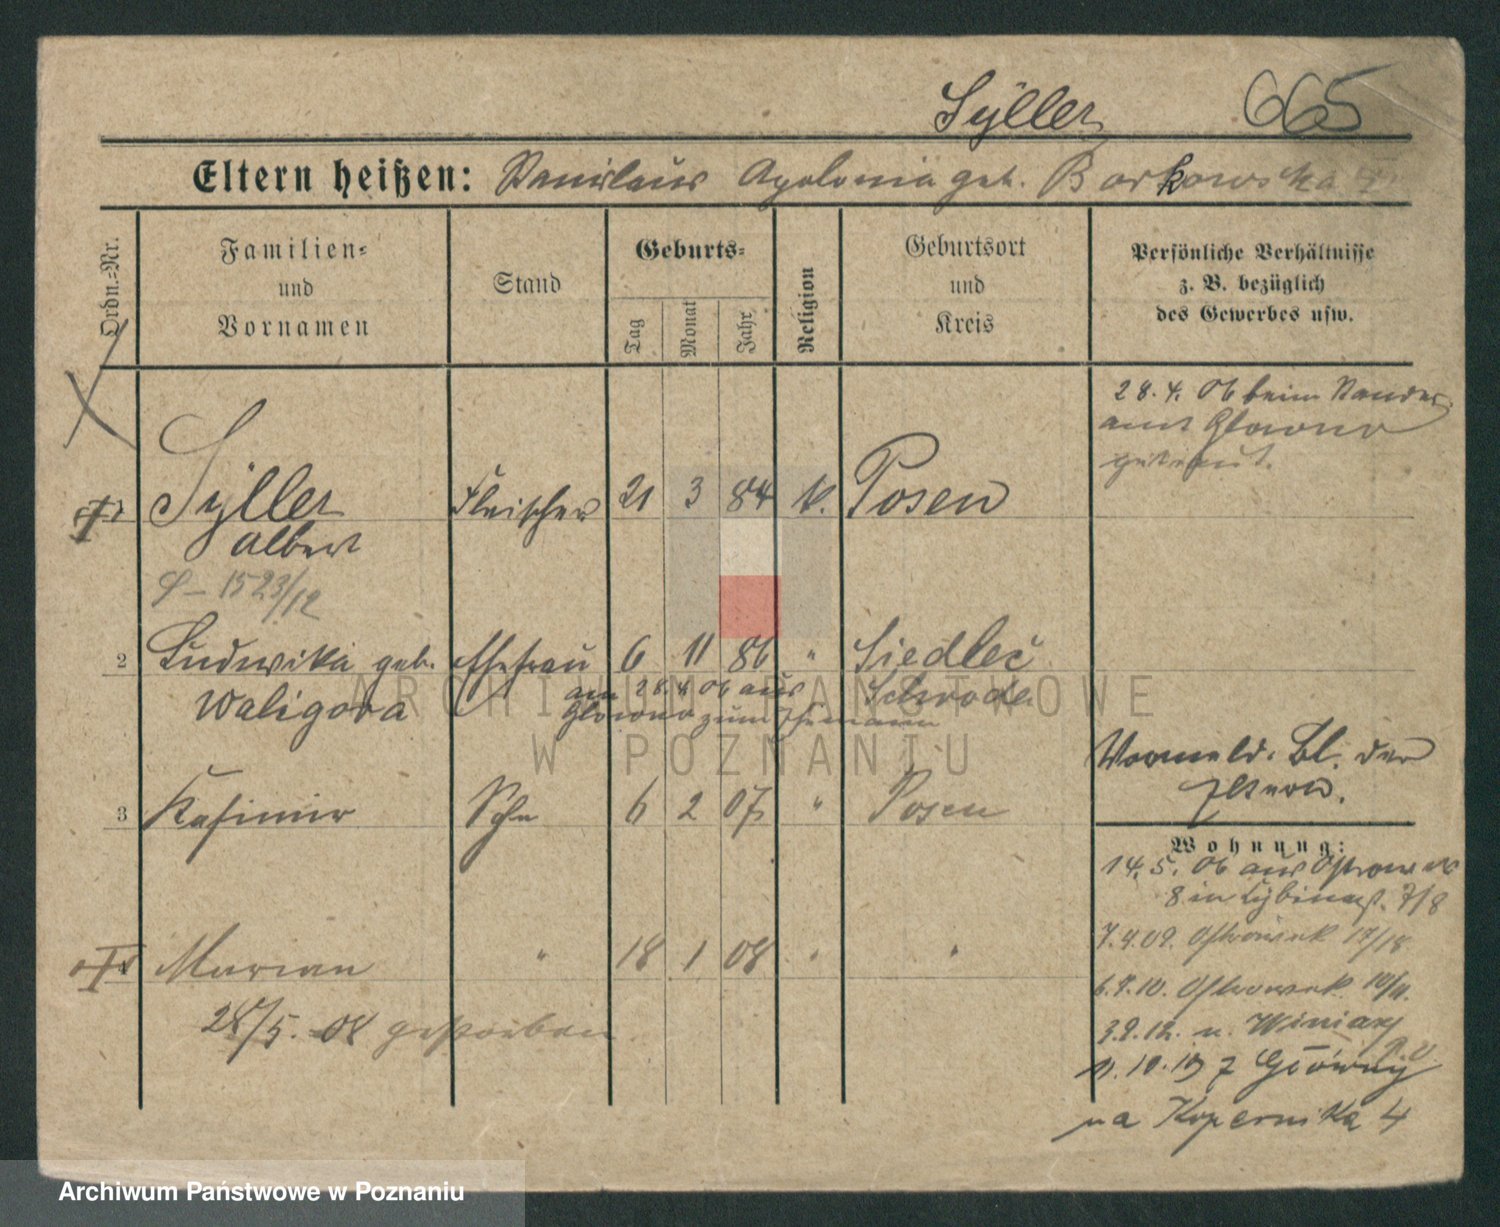 Syller 665
Eltern heißen: Stanislaus Apolonia geb. Borkowska
Ordn.=Nr.
Familien=
und
Vornamen
Stand
Geburts=
Tag
Monat
Jahr
Religion
Geburtsort
und
Kreis
Persönliche Verhältnisse
z. B. bezüglich
des Gewerbes usw.
28. 4. 06 beim Standes
amt Glowno
getraut.
Syller Fleischer 21 3 84 k. Posen
Albert
1523/12
2 Ludwika geb. Ehefrau 6 11 86 " Siedlec
Waligora Schroda
am 28.4 06 aus
Glowno zum Ehemann
Vormeld. Bl. der
Eltern.
3 Kasimir Sohn 6 2 07 " Posen
Wohnung:
14. 5. 06 aus Ostrowek
8 in Cybinastr. 7/8
7.4.09. Ostrowek 17/18
4 Marian " 18 1 08 " "
6.9.10. Ostrowek 10/11.
28/5. 08 gestorben
3.9.12. n. Winiary
11.10.19 z Główny
na Kopernika 4
ARCHIWUM PAŃSTWOWE
W POZNANIU
Archiwum Państwowe w Poznaniu